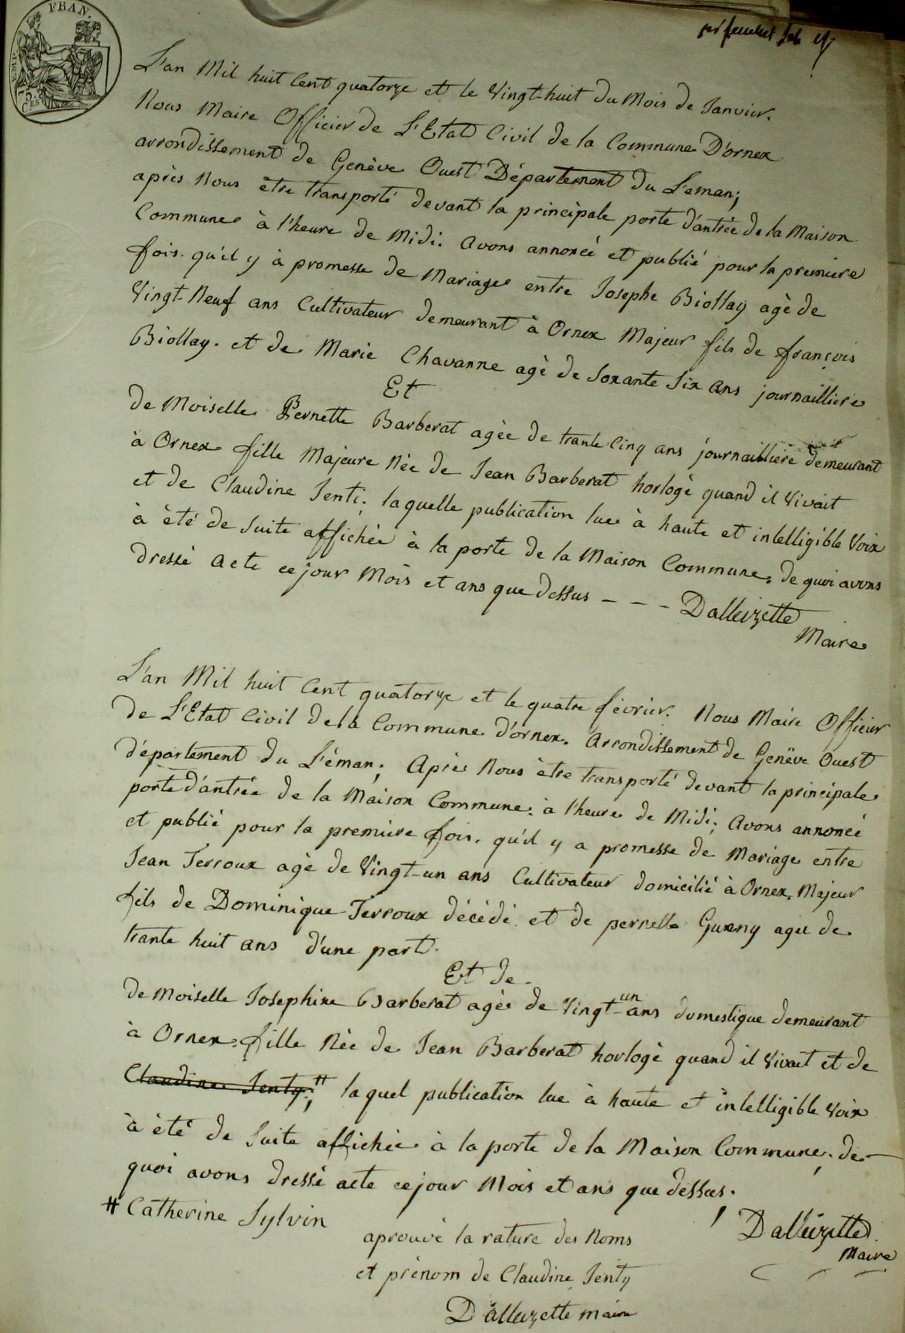 FRAN.
L'an Mil huit Cent quatorze et le Vingt-huit du Mois de Janvier.
Nous Maire Officier de L'Etat Civil de la Commune D'ornex
arrondissement de Genève Ouest Département du Leman;
après Nous être transporté devant la principale porte d'antrée de la Maison
Commune à l'heure de Midi. Avons annoncé et publié pour la premiere
fois. qu'il y à promesse de Mariage entre Josephe Biollay agè de
Vingt-Neuf ans Cultivateur demeurant à Ornex Majeur fils de françois
Biollay. et de Marie Chavanne agè de Soxante Six ans journailliere
Et
de Moiselle Pernette Barberat agèe de trante Cinq ans journailliere demeurant
à Ornex fille Majeure Née de Jean Barberat horlogè quand il Vivait
et de Claudine Jenti; laquelle publication lue à haute et intelligible Voix
à été de Suite affichée à la porte de la Maison Commune, de quoi avons
dressé acte ce jour Mois et ans que dessus - - - Dalleizette
Maire
L'an Mil huit Cent quatorze et le quatre février. Nous Maire Officier
de L'Etat Civil de la Commune d'ornex. Arrondissement de Genève Ouest
département du Léman; Après Nous être transporté devant la principale
porte d'antrée de la Maison Commune à l'heure de Midi; Avons annoncé
et publié pour la premiere fois, qu'il y a promesse de Mariage entre
Jean Terroux agè de Vingt-un ans Cultivateur domicilié à Ornex, Majeur
fils de Dominique Terroux décédé et de pernette agée de
trante huit ans d'une part.
Et de
de Moiselle Josephine Barberat agée de Vingt-un ans domestique demeurant
à Ornex, fille Née de Jean Barberat horlogè quand il Vivait et de
Claudine Jenty,# laquel publication lue à haute et intelligible Voix
à été de Suite affichée à la porte de la Maison Commune, de
quoi avons dressé acte ce jour Mois et ans que dessus.
# Catherine Sylvin
Dalleizette
Maire
aprouvé la rature des Noms
et prénom de Claudine Jenty
Dalleizette maire